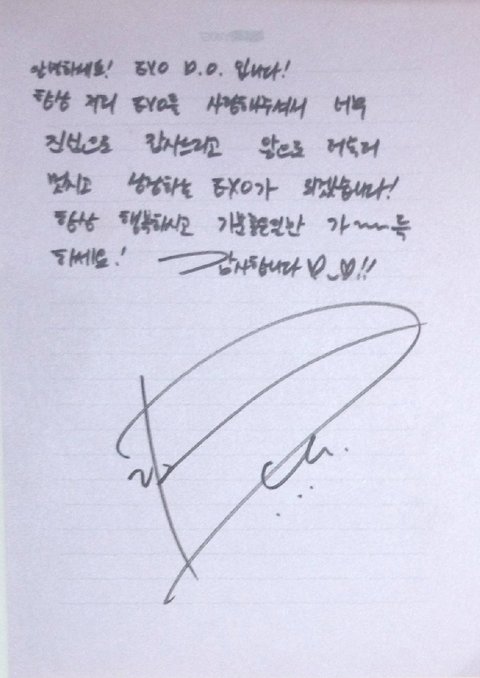 안녕하세요! EXO D.O. 입니다!
항상 저희 EXO를 사랑해주셔서 너무
진심으로 감사드리고 앞으로 더욱더
멋지고 성장하는 EXO가 되겠습니다!
항상 행복하시고 기분좋은일만 가~~득
하세요! 감사합니다 ♡_♡!!